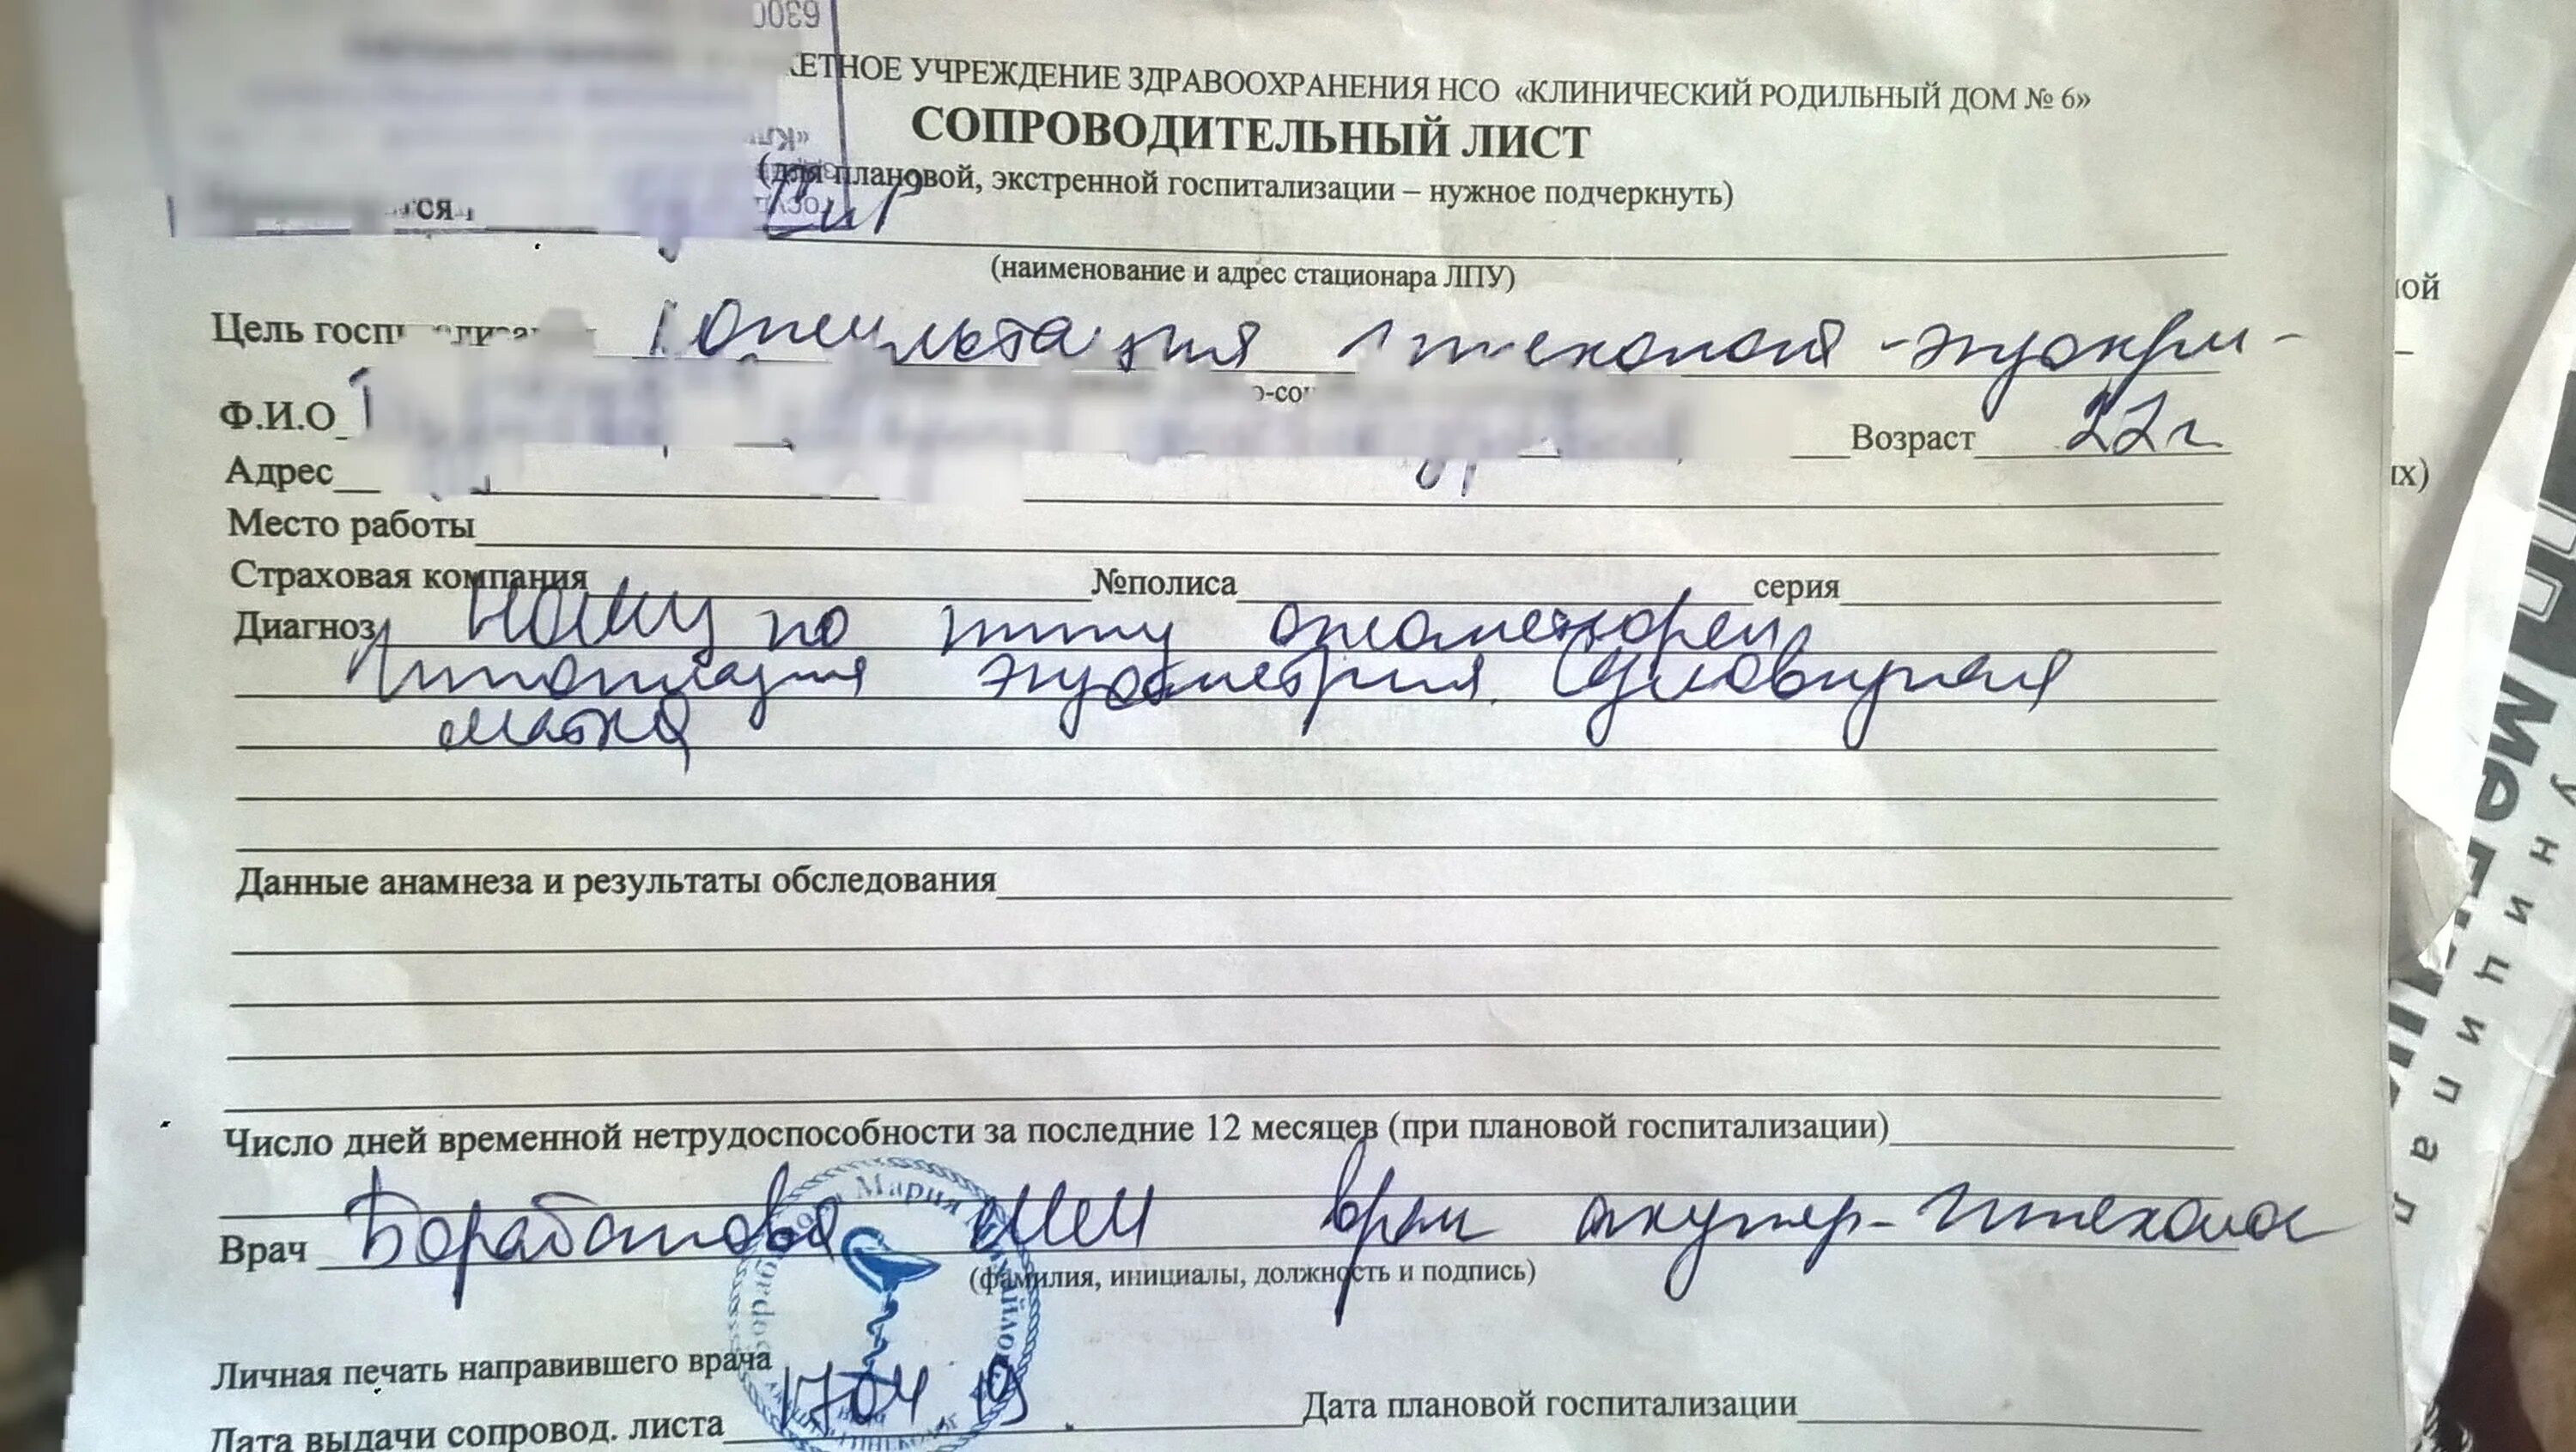 6300
КЕТНОЕ УЧРЕЖДЕНИЕ ЗДРАВООХРАНЕНИЯ НСО «КЛИНИЧЕСКИЙ РОДИЛЬНЫЙ ДОМ № 6»
СОПРОВОДИТЕЛЬНЫЙ ЛИСТ
(для плановой, экстренной госпитализации – нужное подчеркнуть)
ся
(наименование и адрес стационара ЛПУ)
Цель госп Консультация гинеколога-эндокри-
о-со
Ф.И.О Возраст 22г
Адрес
Место работы
Страховая компания №полиса серия
Диагноз НОМЦ по типу опсоменореи
Гипоплазия эндометрия. Седловидная
матка
Данные анамнеза и результаты обследования
Число дней временной нетрудоспособности за последние 12 месяцев (при плановой госпитализации)
Врач Барабанова врач акушер-гинеколог
(фамилия, инициалы, должность и подпись)
Мария Михайлов
Личная печать направившего врача
Дата выдачи сопровод. листа 17.04.19 Дата плановой госпитализации
ной
их)